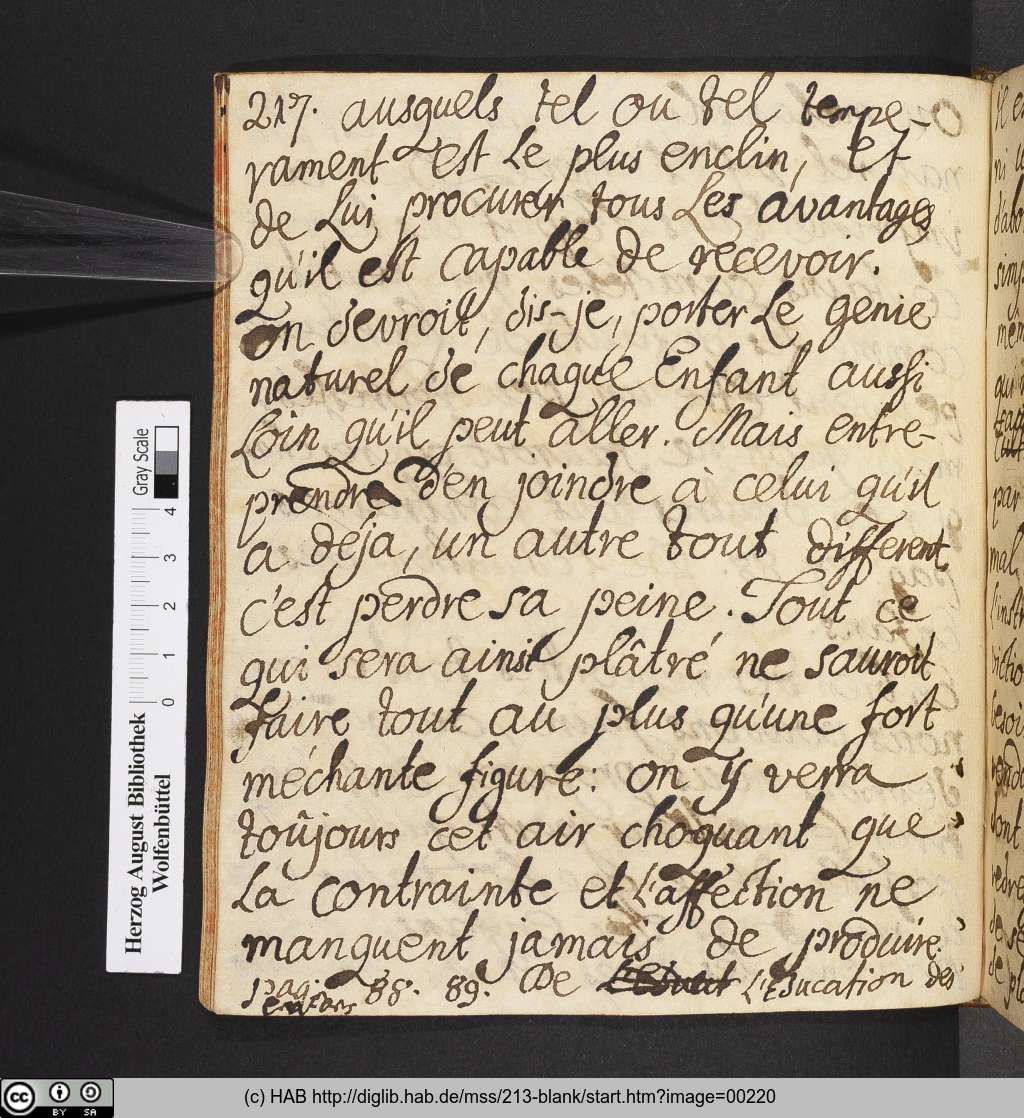 217. ausquels tel ou tel tempe-
rament est le plus enclin, et
de Lui procurer tous Les avantages
qu'il est capable de recevoir.
on devroit, dis-je, porter Le genie
naturel de chaque Enfant aussi
Loin qu'il peut aller. Mais entre-
prendre d'en joindre à celui qu'il
a déja, un autre tout different
c'est perdre sa peine. Tout ce
qui sera ainsi plâtré ne sauroit
faire tout au plus qu'une fort
méchante figure: on y verra
toûjours cet air choquant que
La contrainte et L'affection ne
manquent jamais de produire.
pag. 88. 89. De L'Education des
enfans
Il e
ni
d'abo
simp
mêm
qui
par
mal
l'inst
besoi
rend
dont
redre
de se
de pl
Herzog August Bibliothek
Wolfenbüttel
0 1 2 3 4
Gray Scale
cc BY SA
(c) HAB http://diglib.hab.de/mss/213-blank/start.htm?image=00220